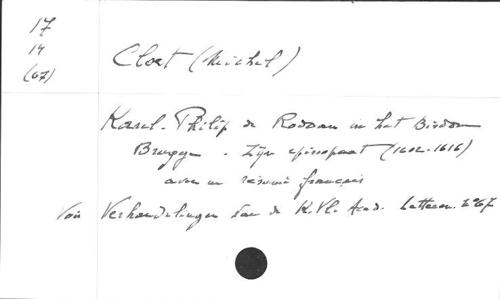 17
14
(67)
Cloet (Michel)
Karel-Philip de Rodoan in het Bisdom
Brugge. Zijn episcopaat (1602-1616)
avec un résumé français
Voir Verhandelingen van de K. Vl. Acad. Letteren. n° 67